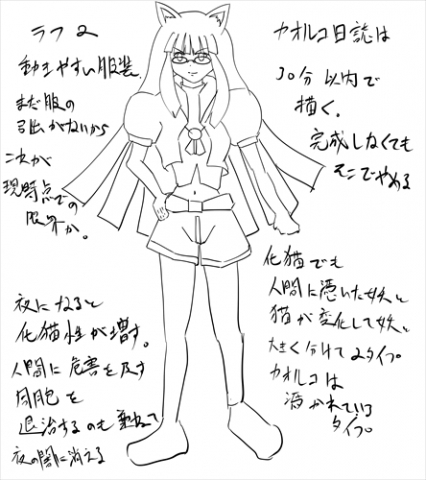 ラフ2
動きやすい服装
まだ服の
引出がないから
これが
現時点での
限界か。
夜になると
化猫性が増す。
人間に危害を及す
同胞を
退治するのも兼ねて
夜の闇に消える
カオルコ日誌は
30分以内で
描く。
完成しなくても
そこでやめる
化猫でも
人間に憑いた妖と
猫が変化した妖と
大きく分けて2タイプ。
カオルコは
憑かれている
タイプ。